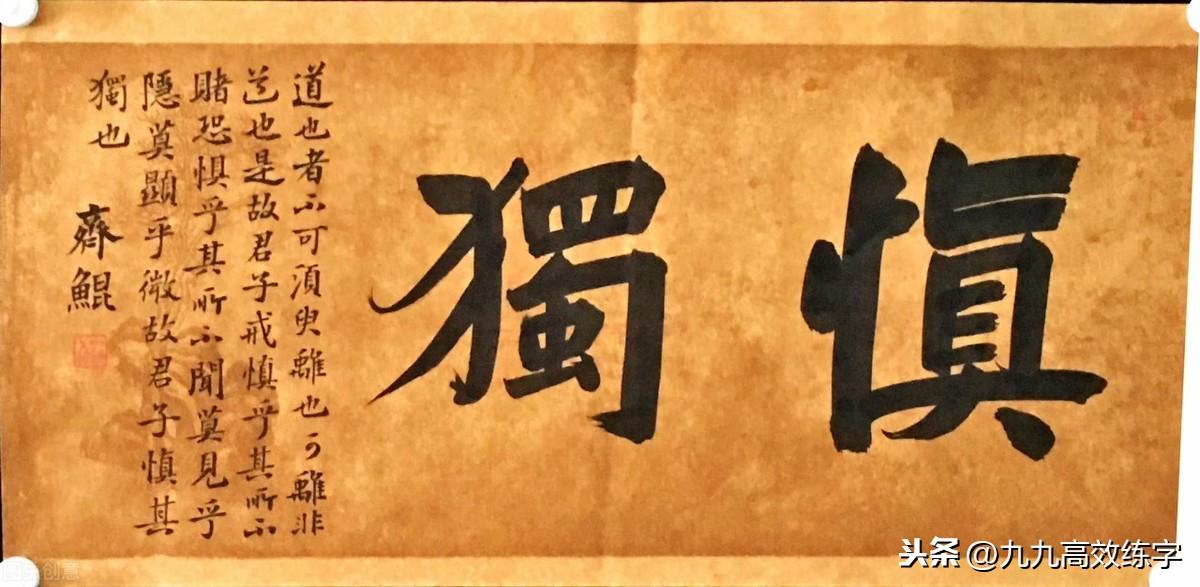 慎獨
道也者不可須臾離也可離非
道也是故君子戒慎乎其所不
睹恐惧乎其所不聞莫見乎
隱莫顯乎微故君子慎其
獨也
齊鯤
头条 @九九高效练字
创意